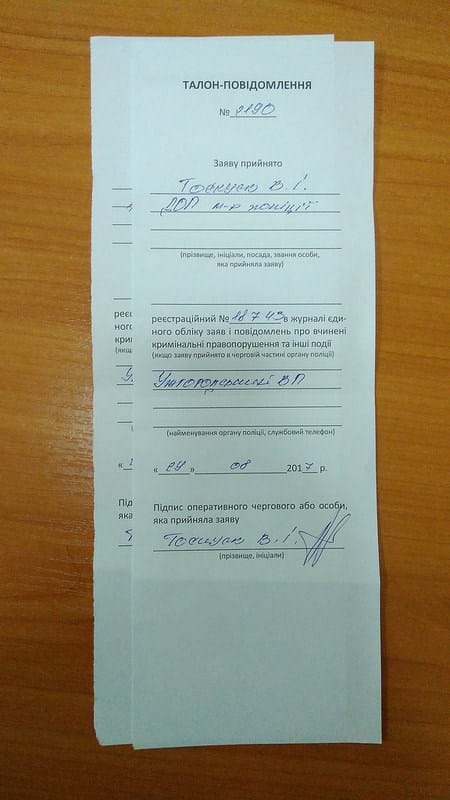 ТАЛОН-ПОВІДОМЛЕННЯ
№ 2190
Заяву прийнято
В. І.
ДОП м-р поліції
(прізвище, ініціали, посада, звання особи,
яка прийняла заяву)
реєстраційний № 18743 в журналі єди-
ного обліку заяв і повідомлень про вчинені
кримінальні правопорушення та інші події
(якщо заяву прийнято в черговій частині органу поліції)
Ужгородський ВП
(найменування органу поліції, службовий телефон)
« 29 » 08 2017 р.
Підпис оперативного чергового або особи,
яка прийняла заяву
В. І.
(прізвище, ініціали)
реєс
ного
крим
(якщо
«
Під
яка